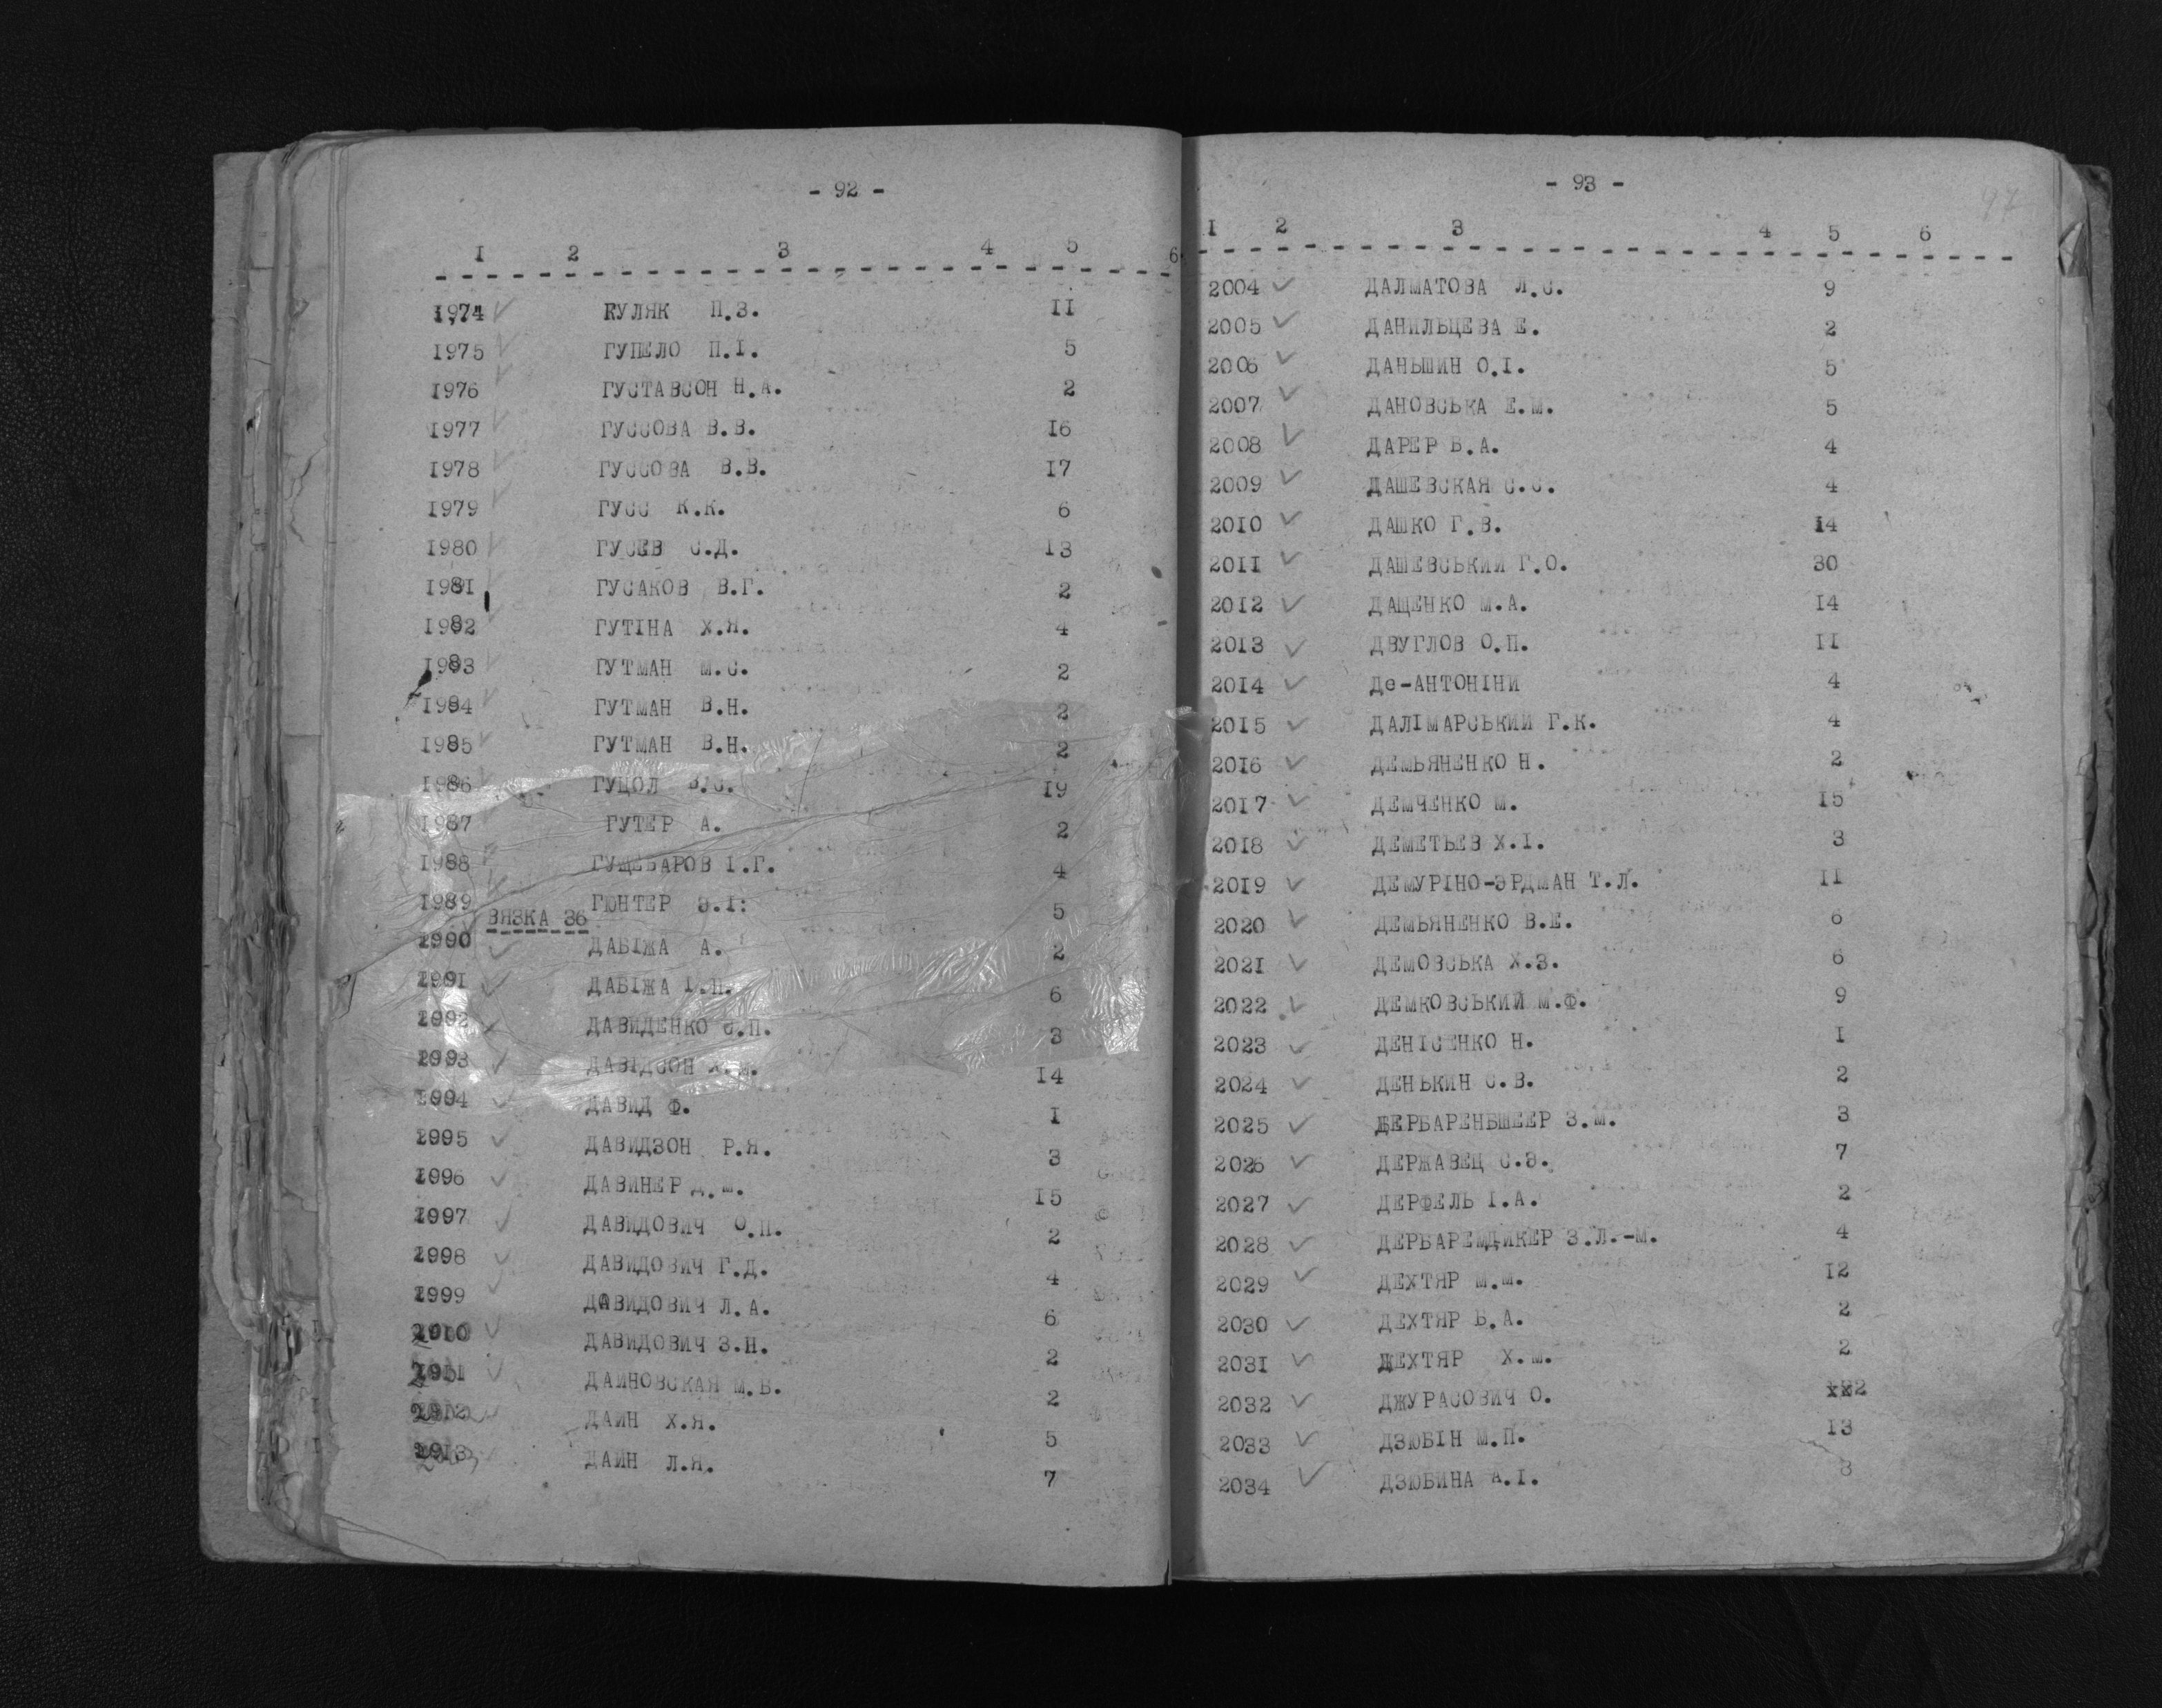 - 92 -
1 2 3 4 5 6
1974 ГУЛЯК П.З. 11
1975 ГУПЕЛО П.І. 5
1976 ГУСТАВСОН Н.А. 2
1977 ГУССОВА В.В. 16
1978 ГУССОВА В.В. 17
1979 ГУСС К.К. 6
1980 ГУСЕВ С.Д. 13
1981 ГУСАКОВ В.Г. 2
1982 ГУТІНА Х.Я. 4
1983 ГУТМАН М.С. 2
1984 ГУТМАН В.Н. 2
1985 ГУТМАН В.Н. 2
1986 ГУЦОЛ В.С. 19
1987 ГУТЕР А. 2
1988 ГУЩЕБАРОВ І.Г. 4
1989 ГЮНТЕР Э.І. 5
ВЯЗКА 36
1990 ДАБІЖА А. 2
1991 ДАБІЖА 6
1992 ДАВИДЕНКО 3
1993 ДАВІДСОН 14
1994 ДАВИД Ф. 1
1995 ДАВИДЗОН Р.Я. 3
1996 ДАВИНЕР Д.М. 15
1997 ДАВИДОВИЧ О.П. 2
1998 ДАВИДОВИЧ Г.Д. 4
1999 ДАВИДОВИЧ Л.А. 6
2000 ДАВИДОВИЧ З.Н. 2
2001 ДАИНОВСКАЯ М.Б. 2
2002 ДАИН Х.Я. 5
2003 ДАИН Л.Я. 7
- 93 -
1 2 3 4 5 6
2004 ДАЛМАТОВА Л.С. 9
2005 ДАНИЛЬЦЕВА Е. 2
2006 ДАНЬШИН О.І. 5
2007 ДАНОВСЬКА Е.М. 5
2008 ДАРЕР Б.А. 4
2009 ДАШЕВСКАЯ С.С. 4
2010 ДАШКО Г.В. 14
2011 ДАШЕВСЬКИЙ Г.О. 30
2012 ДАЩЕНКО М.А. 14
2013 ДВУГЛОВ О.П. 11
2014 Де-АНТОНІНИ 4
2015 ДАЛІМАРСЬКИЙ Г.К. 4
2016 ДЕМЬЯНЕНКО Н. 2
2017 ДЕМЧЕНКО М. 15
2018 ДЕМЕТЬЕВ Х.І. 3
2019 ДЕМУРІНО-ЭРДМАН Т.Л. 11
2020 ДЕМЬЯНЕНКО В.Е. 6
2021 ДЕМОВСЬКА Х.З. 6
2022 ДЕМКОВСЬКИЙ М.Ф. 9
2023 ДЕНІСЕНКО Н. 1
2024 ДЕНЬКИН С.В. 2
2025 ДЕРБАРЕНЬШЕЕР З.М. 3
2026 ДЕРЖАВЕЦ С.Э. 7
2027 ДЕРФЕЛЬ І.А. 2
2028 ДЕРБАРЕМДИКЕР З.Л.-М. 4
2029 ДЕХТЯР М.М. 12
2030 ДЕХТЯР Б.А. 2
2031 ДЕХТЯР Х.М. 2
2032 ДЖУРАСОВИЧ О. 2
2033 ДЗЮБІН М.П. 13
2034 ДЗЮБИНА А.І. 3